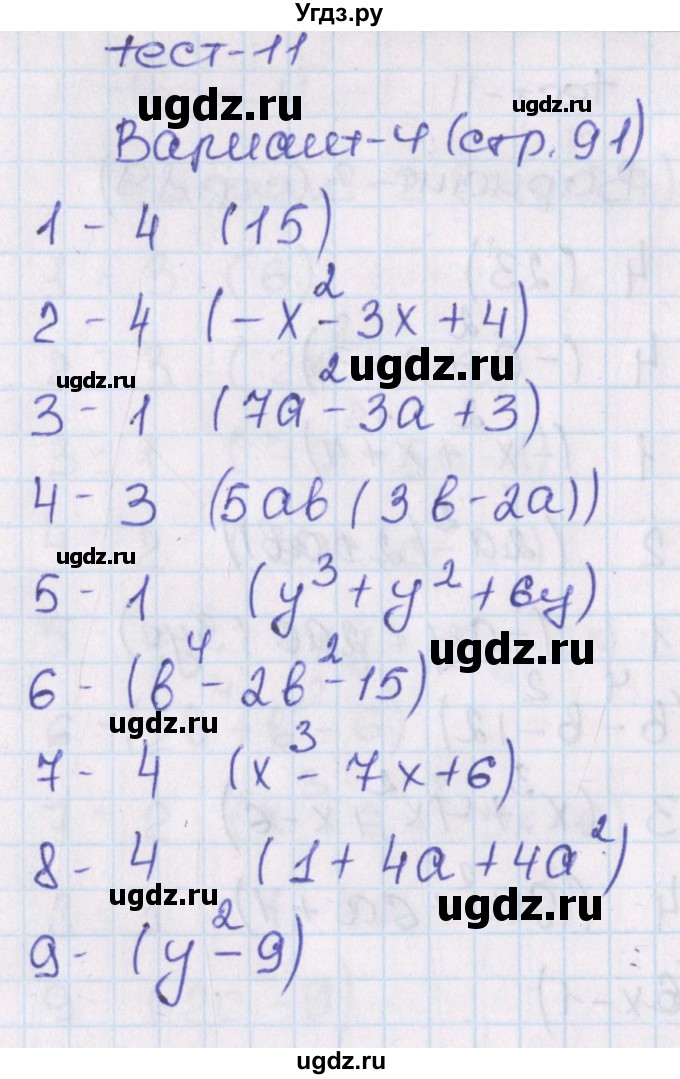 Угдз.ру
тест-11
ugdz.ru ugdz.ru
Вариант-4 (стр. 91)
1 - 4 (15)
2 - 4 (-x² - 3x + 4)
ugdz.ru ugdz.ru
3 - 1 (7a² - 3a + 3)
4 - 3 (5ab (3b - 2a))
ugdz.ru
5 - 1 (y³ + y² + 6y)
ugdz.ru
6 - (b⁴ - 2b² - 15)
ugdz.ru
7 - 4 (x³ - 7x + 6)
8 - 4 (1 + 4a + 4a²)
ugdz.ru ugdz.ru
9 - (y² - 9)
ugdz.ru